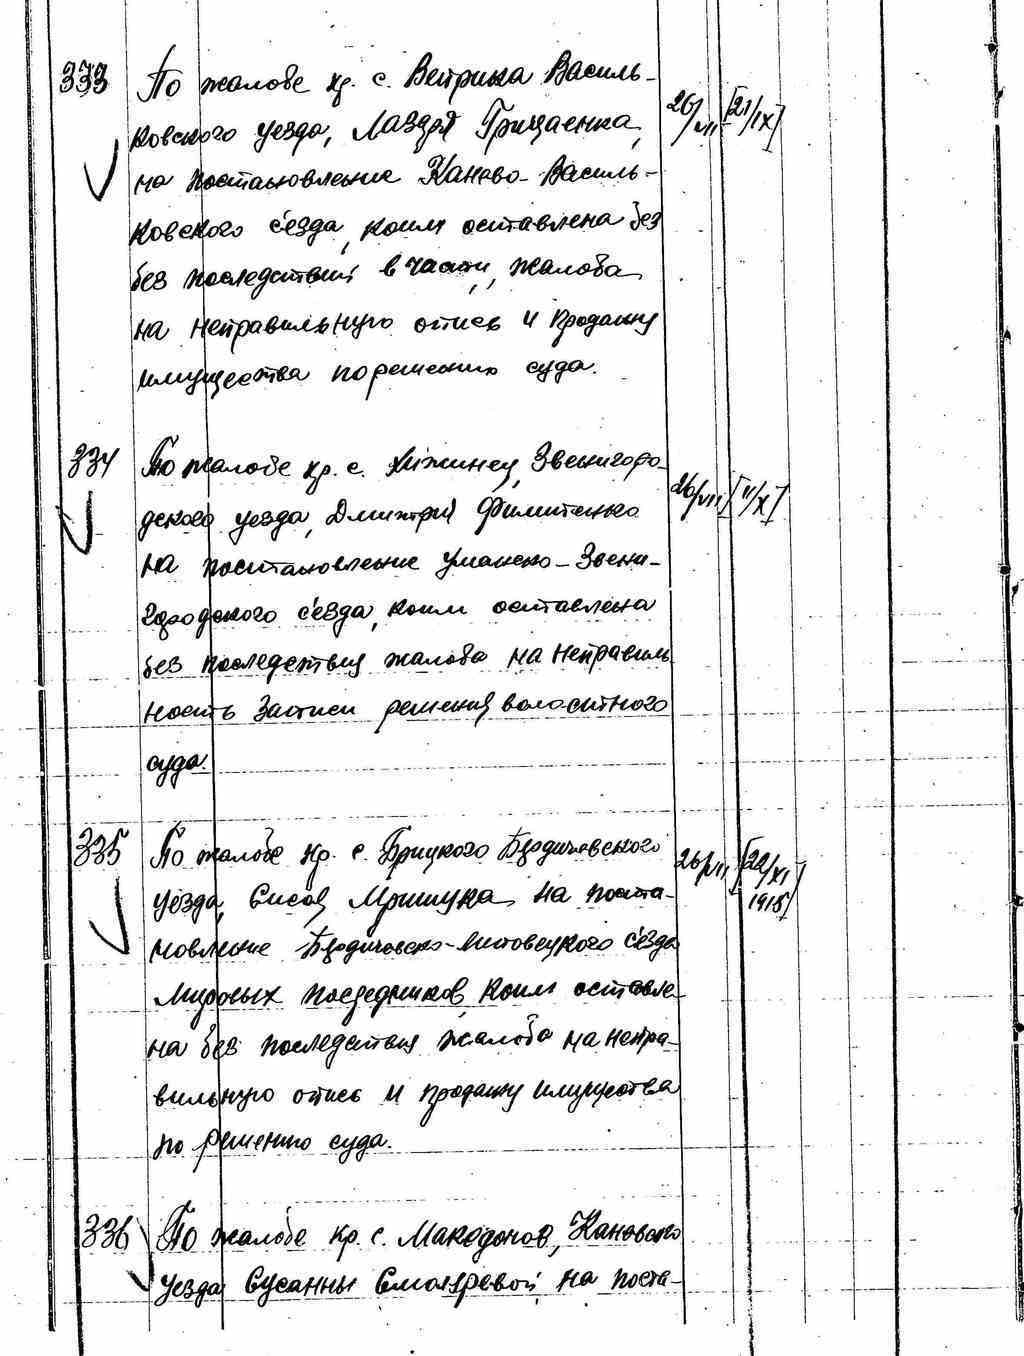 333 По жалобе кр. с. Ветрика Василь-
ковского уезда, Лазаря Грицаенка, 26/VII [21/IX]
на постановление Канево-Василь-
ковского съезда, коим оставлена без
без последствий в части, жалоба
на неправильную опись и продажу
имущества по решению суда.
334 По жалобе кр. с. Хижинец, Звенигоро-
дского уезда, Дмитрия Филипенко 26/VII [11/X]
на постановление Уманско-Звени-
городского съезда, коим оставлена
без последствия жалоба на неправиль
ность записи решения волостного
суда.
335 По жалобе кр. с. Брицкого Бердичевского 26/VII [22/XI 1915]
уезда, на поста-
новление Бердичевско-Липовецкого съезда
Мировых посредников, коим оставле-
на без последствия жалоба на непра-
вильную опись и продажу имущества
по решению суда.
336 По жалобе кр. с. Македонов, Каневского
уезда Сусанны на поста-